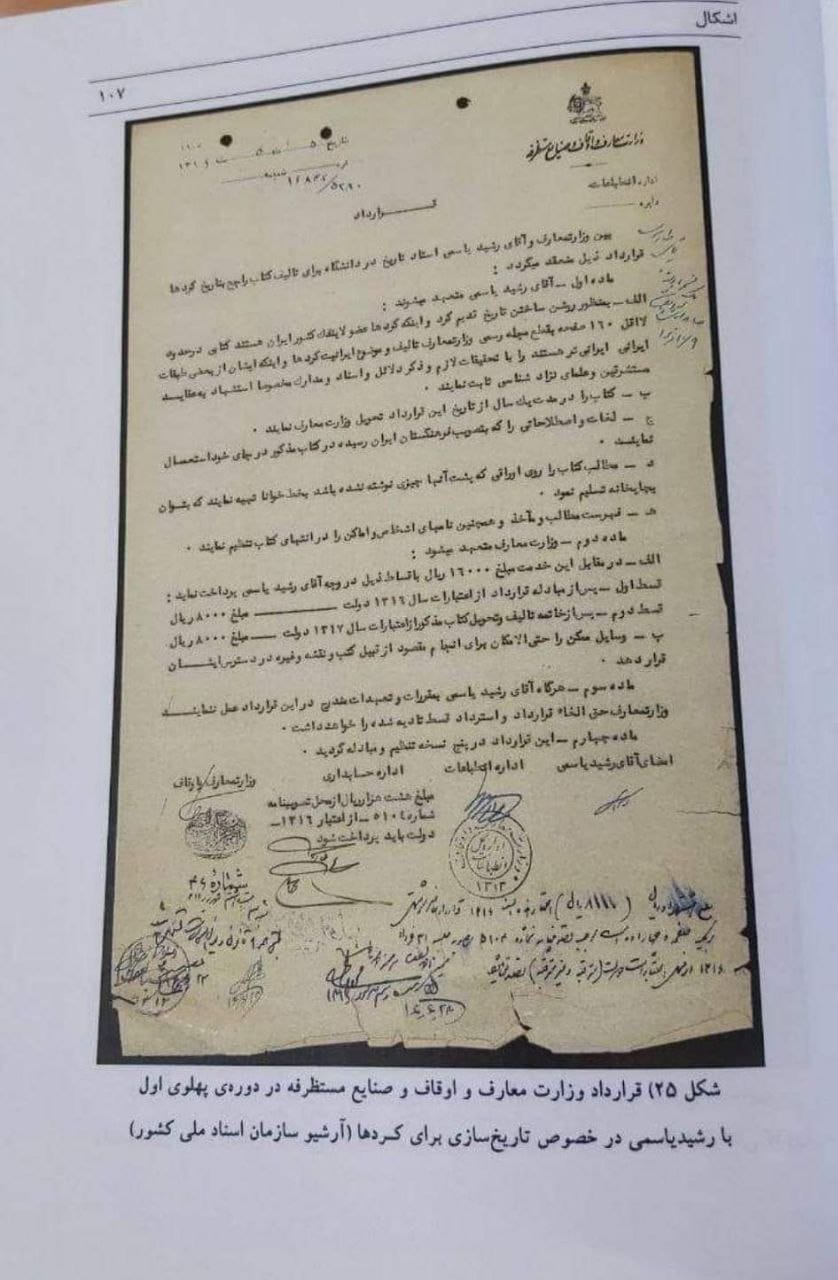 اشکال
۱۰۷
وزارت معارف و اوقاف و صنایع مستظرفه
اداره انطباعات
دایره
تاریخ
نمره
۱۶۸۴۶/۵۲۹۰
قرارداد
بین وزارتمعارف و آقای رشید یاسمی استاد تاریخ در دانشگاه برای تالیف کتاب راجع بتاریخ کردها
قرارداد ذیل منعقد میگردد :
ماده اول – آقای رشید یاسمی متعهد میشوند :
الف – بمنظور روشن ساختن تاریخ قدیم کرد و اینکه کردها عضو لاینفک کشور ایران هستند کتابی در حدود
لااقل ۱۶۰ صفحه بقطع مجله رسمی وزارتمعارف تالیف و موضوع ایرانیت کردها و اینکه ایشان از بعضی طبقات
ایرانی ایرانی تر هستند را با تحقیقات لازم و ذکر دلائل و اسناد و مدارک مخصوصا استشهاد به عقایـد
مستشرقین و علمای نژاد شناسی ثابت نمایند .
ب – کتاب را در مدت یک سال از تاریخ این قرارداد تحویل وزارت معارف نمایند .
ج – لغات و اصطلاحاتی را که بتصویب فرهنگستان ایران رسیده در کتاب مذکور در جای خود استعمال
نماینـد .
د – مطالب کتاب را روی اوراقی که پشت آنها چیزی نوشته نشده باشد بخط خوانا تهیه نمایند که بتوان
بچاپخانه تسلیم نمود .
هـ – فهرست مطالب و مآخذ و همچنین نامهای اشخاص و اماکن را در انتهای کتاب تنظیم نمایند .
ماده دوم – وزارت معارف متعهد میشود :
الف – در مقابل این خدمت مبلغ ۱۶۰۰۰ ریال باقساط ذیل در وجه آقای رشید یاسمی پرداخت نماید :
قسط اول – پس از مبادله قرارداد از اعتبارات سال ۱۳۱۶ دولت ـــــــ مبلغ ۸۰۰۰ ریال
قسط دوم – پس از خاتمه تالیف و تحویل کتاب مذکور از اعتبارات سال ۱۳۱۷ دولت ـــــ مبلغ ۸۰۰۰ ریال
ب – وسایل ممکن را حتی الامکان برای انجام مقصود از قبیل کتب و نقشه و غیره در دسترس ایشـــان
قرار دهد .
ماده سوم – هرگاه آقای رشید یاسمی بمقررات و تعهدات مندرج در این قرارداد عمل ننماینـــد
وزارتمعارف حق الغاء قرارداد و استرداد قسط تادیه شده را خواهد داشت .
ماده چهارم – این قرارداد در پنج نسخه تنظیم و مبادله گردید .
امضای آقای رشید یاسمی اداره انطباعات اداره حسابداری وزارتمعارف و اوقاف
مبلغ هشت هزار ریال از محل تصویبنامه
شماره ۵۱۰۴ – از اعتبار ۱۳۱۶ –
دولت باید پرداخت شود
۱۳۱۳
شماره ۴۶
شکل ۲۵) قرارداد وزارت معارف و اوقاف و صنایع مستظرفه در دوره‌ی پهلوی اول
با رشیدیاسمی در خصوص تاریخ‌سازی برای کردها (آرشیو سازمان اسناد ملی کشور)